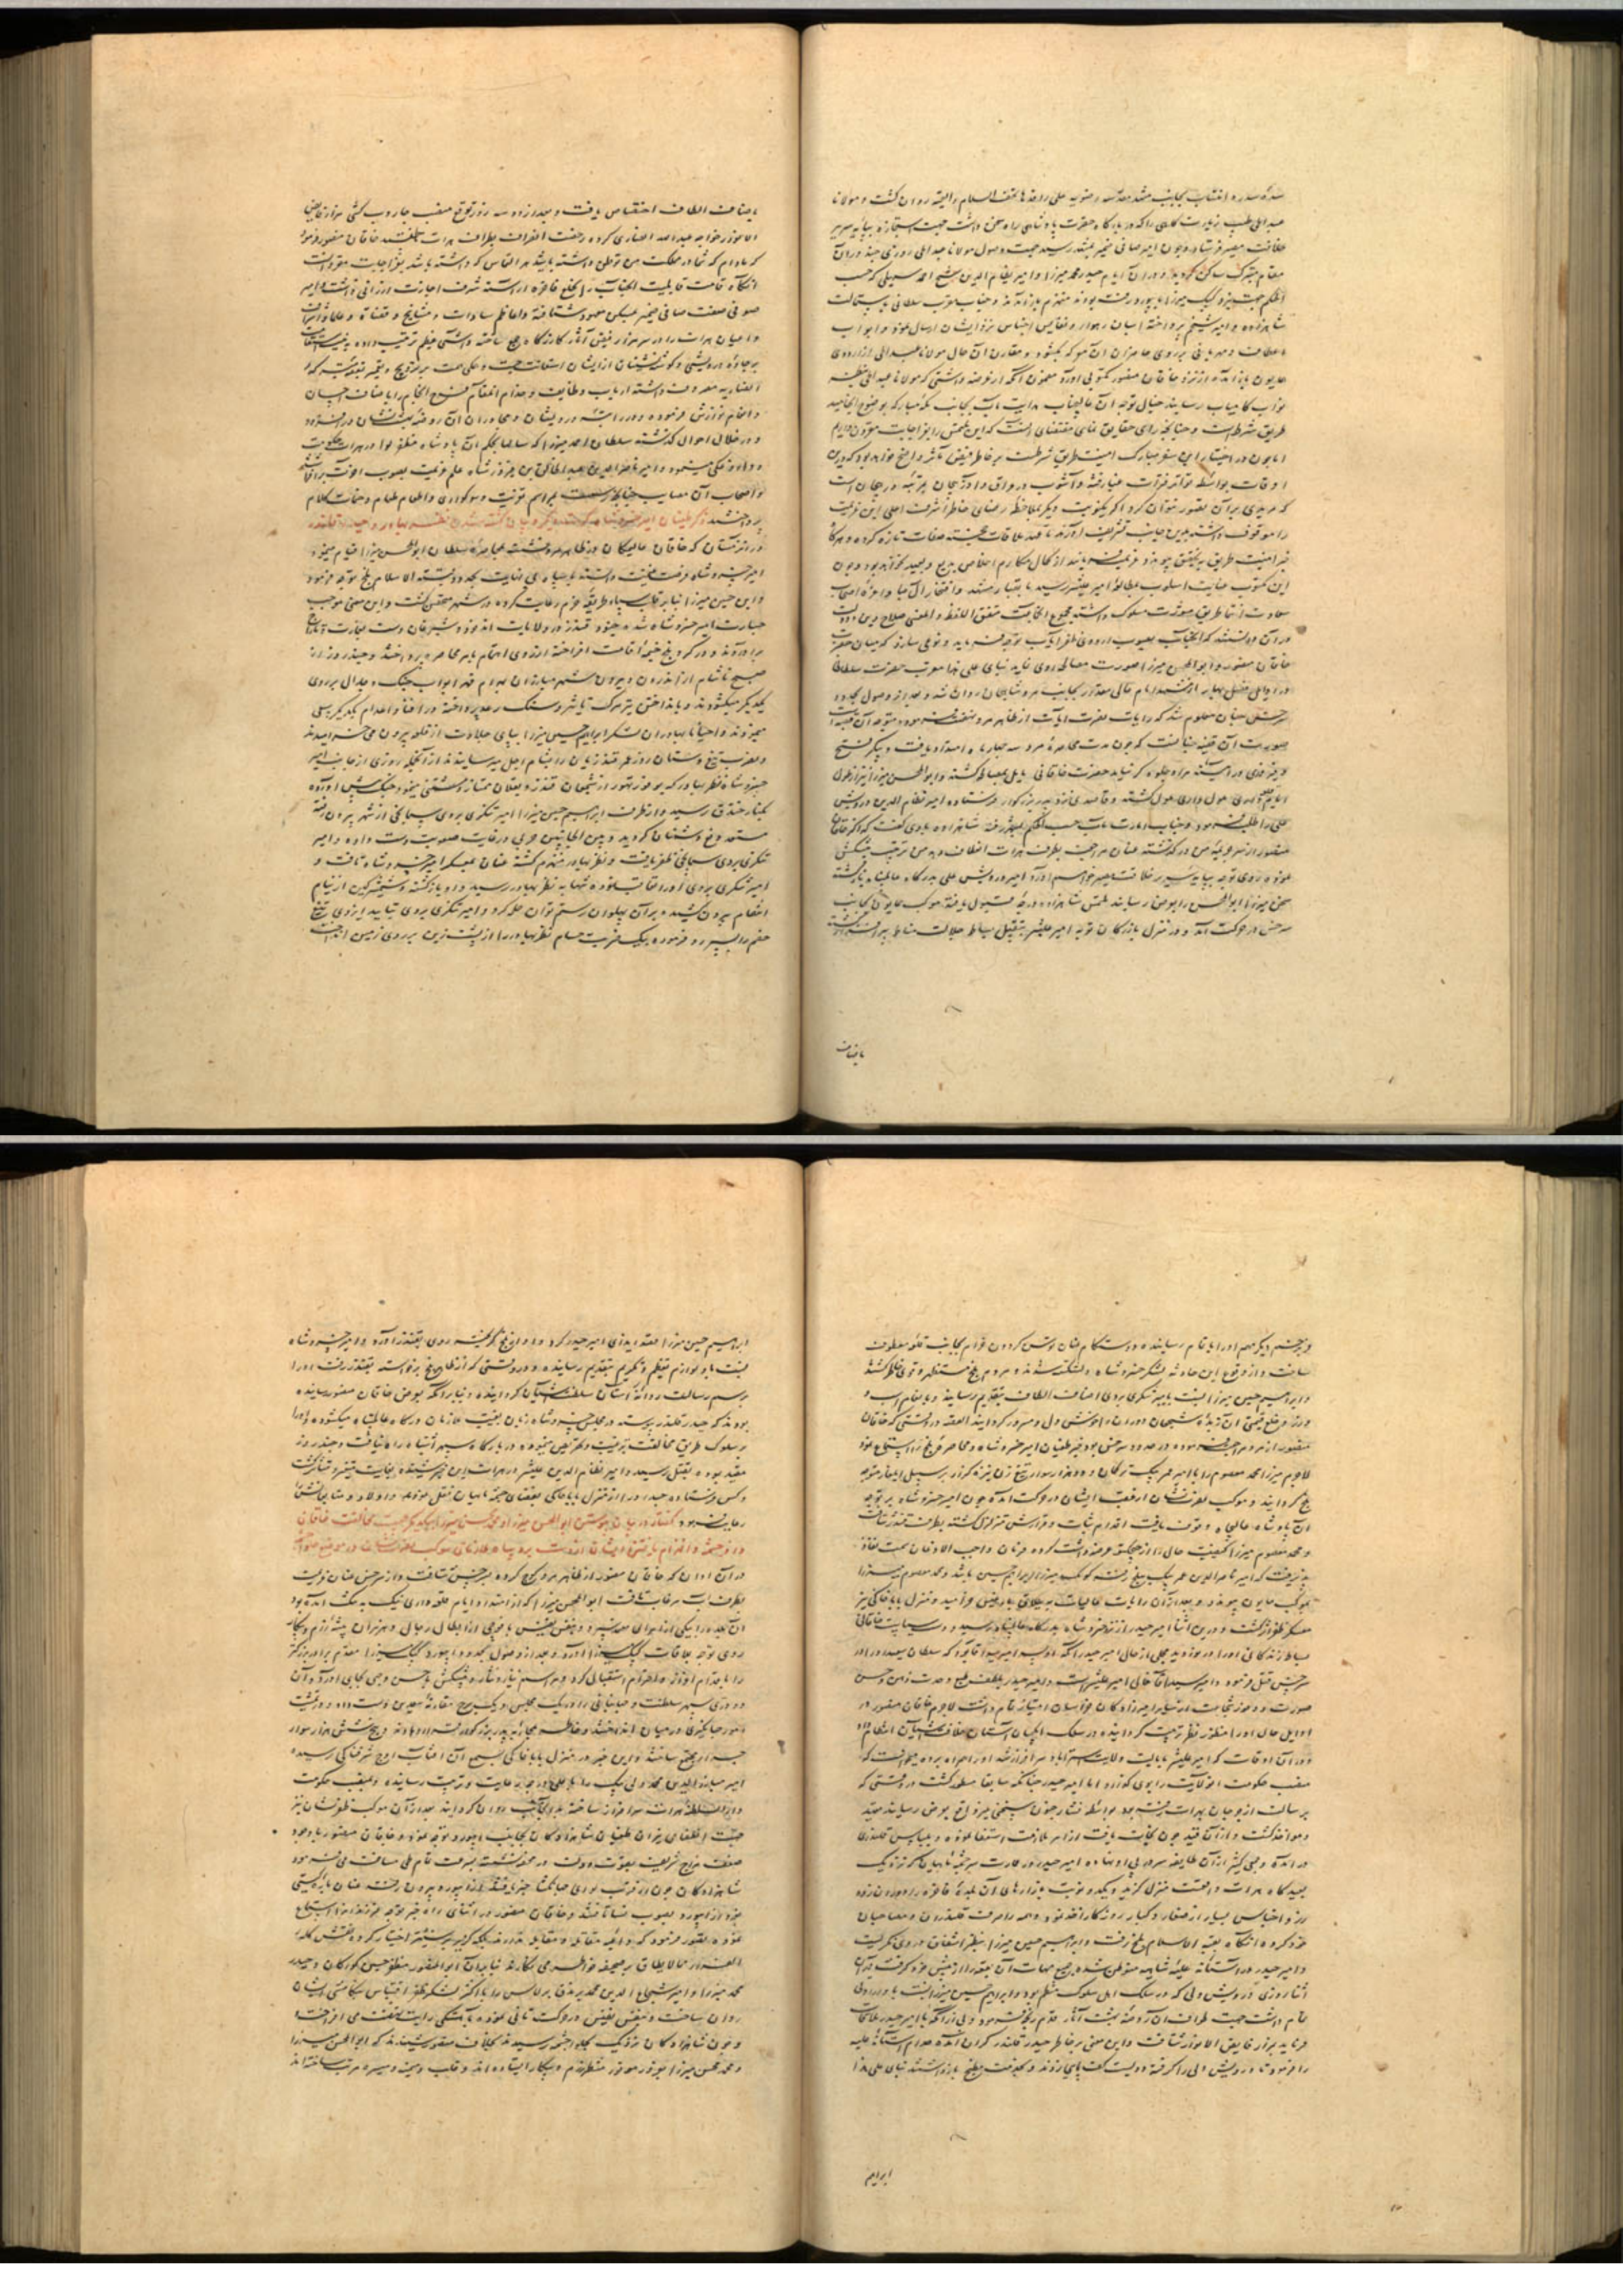 سده سدره انتساب بجانب مشهد مقدسه رضویه علی راقدها تحف السلام والتحیه روان گشت و مولانا
عبدالحی طبیب را که در بارگاه حضرت پادشاهی راه سخن داشت جهت استجازه بپایه سریر
خلافت مصیر فرستاد و چون امیر صافی ضمیر بمشهد رسید جهت وصول مولانا عبدالحی روزی چند در آن
مقام متبرک ساکن گردید و در آن ایام حیدر محمد میرزا و امیر نظام الدین شیخ احمد سهیلی که حسب
الحکم جهت میرزا بابیورد رفته بودند منهزم باز آمدند و جناب مقرب سلطانی باستمالت
شاهزاده و امیر شیخم پرداخته اسپان رهوار و نفایس اجناس نزد ایشان ارسال نمود و ابواب
عاطفت و مهربانی بر روی حاضران آن معرکه بگشود و مقارن آن حال مولانا عبدالحی از اردوی
همایون باز آمده از نزد خاقان منصور مکتوبی آورد مضمون آنکه از عرضه داشتی که مولانا عبدالحی
نواب کامیاب رسانید خیال توجه آن عالیجناب هدایت مآب بجانب مکه مبارکه بوضوح انجامید
طریق شرط است و چنانچه رای حقایق
اوقات بواسطه تواتر فترات غبار فتنه و آشوب در عراق و آذربیجان بمرتبه در هیجان است
که مزیدی بر آن تصور نتوان کرد اگر یکنوبت دیگر ملاحظه رضای خاطر اشرف اعلی این عزیمت
را موقوف داشته بدین جانب تشریف آورند تا قصد ملاقات تازه کرده و هرگاه
خبر امنیت طریق بتحقیق پیوندد عزیمت فرمایند از کمال مکارم اخلاص بدیع و بعید نخواهد بود و چون
این مکتوب عنایت اسلوب بمطالعه امیر علیشیر رسید با نقباء مشهد و افتخار آل عبا و اعزه اصحاب
سعادت انتما طریق مشورت مسلوک داشته مجموع آنجماعت متفق اللفظ والمعنی صلاح دین و دولت
در آن دانستند که آنجناب بصوب اردوی ظفر مآب توجه فرماید و نوعی سازد که میان حضرت
خاقان منصور و ابوالمحسن میرزا صورت مصالحه روی نماید بنابرین علی هذا مقرب حضرت سلطانی
در اوایل فصل بهار از مشهد امام عالی مقدار بجانب مرو شاهجان روان شد و بعد از وصول بحدود
سرخس چنان معلوم شد که رایات نصرت آیات از ظاهر مرو نهضت فرموده متوجه آن قصبه است
صورت آن قضیه چنانست که چون مدت محاصره مرو سه چهار ماه امتداد یافت و پیکر فتح
و فیروزی در آئینه مراد جلوه گر نیامد حضرت خاقانی مایل بمصالحه گشته و ابوالمحسن میرزا نیز از طول
ایام قلعه داری ملول گشته و قاصدی نزد پدر بزرگوار فرستاده امیر نظام الدین درویش
علی را طلب نمود و جناب امارت مآب حسب الحکم بشهر رفته شاهزاده باوی گفت که اگر خاقان
منصور از سر جریمه من در گذشته عنان مراجعت بطرف هرات انعطاف دهد من ترتیب پیشکش
نموده روی توجه بپایه سریر خلافت مصیر خواهم آورد امیر درویش علی بدرگاه عالمپناه باز گشته
سخن میرزا ابوالمحسن را بعرض رسانید ملتمس شاهزاده درجه قبول یافته موکب همایون بجانب
سرخس در حرکت آمد و در منزل بازرگان توبه امیر علیشیر بتقبیل بساط جلالت مناط سرافراز گشته
باصناف
باصناف الطاف اختصاص یافت و بعد از دو سه روز توقع منصب جاروب کشی مزار فایض
الانوار خواجه عبدالله انصاری کرده رخصت انصراف بطرف هرات طلبید خاقان منصور فرمود
که مادام که شما در مملکت من توطن داشته باشید هر التماس که داشته باشید بعز اجابت مقرونست
آنگاه قامت قابلیت آنجناب را بخلع فاخره آراسته شرف اجازت ارزانی داشت و امیر
صوفی صفت صافی ضمیر بمسکن معهود شتافته و اعاظم سادات و مشایخ و قضاة و علما و اشراف
و اعیان هرات را در سر مزار فیض آثار کازرگاه جمع ساخته و آشی عظیم ترتیب داده
بر جاده درویشی و گوشه نشینان از ایشان استعانت جست و همگی همت بر ترویج
انصاریه معروف داشته ارباب وظایف و خدام آنمقام فرخ انجام را باصناف احسان
و انعام نوازش فرموده و در مراتبه درویشان و مجاوران آن روضه بهشت نشان در افزود
و در خلال احوال گذشته سلطان احمد میرزا که سابقا بحکم آن پادشاه مظفر لوا در هرات حکومت
و داروغگی مینمود و امیر ناصر الدین عبدالخالق بن فیروز شاه علم عزیمت بصوب آخرت برافراشتند
و اصحاب آن مصایب چنانچه رسمست بمراسم تعزیت و سوگواری و اطعام طعام و ختمات کلام
پرداختند ذکر طغیان امیر خسرو شاه کرت دیگر و بیان کشته شدن نظر بهادر و حیدر قلندر
در زمستان که خاقان عالیمکان در ظاهر مرو نشسته بمحاصره سلطان ابوالمحسن میرزا قیام مینمود
امیر خسرو شاه فرصت غنیمت دانسته با سپاه بی نهایت بحدود قبة الاسلام بلخ توجه فرمود
و ابراهیم حسین میرزا بنابر قلت سپاه طریقه حزم رعایت کرده در شهر متحصن گشت و این معنی موجب
جسارت امیر خسرو شاه شده جنود قندز در ولایات اندخود و شبرغان دست بغارت و تاراج
برآوردند و در گرد بلخ خیمه اقامت افراخته از روی اهتمام بامر محاصره پرداختند و چند روز از
صبح تا شام از اندرون و بیرون شهر مبارزان بهرام قهر ابواب جنگ و جدال بر روی
یکدیگر میگشودند و بانداختن تیر مرگ تاثیر و سنگ رعد پرداخته در افنا و اعدام یکدیگر سعی
مینمودند و احیانا بهادران لشکر ابراهیم حسین میرزا بپای جلادت از قلعه بیرون می خرامیدند
و بضرب تیغ و سنان روز عمر قندزیان را بشام اجل میرسانیدند از آنجمله روزی از جانب امیر
خسرو شاه نظر بهادر که بوفور تهور از شجعان قندز و بغلان ممتاز و مستثنی مینمود جنگ پیش آورده
بکنار خندق رسید و از طرف ابراهیم حسین میرزا امیر تنگری بردی سمانچی از شهر بیرون رفته
مستعد دفع دشمنان گردید و بین الجانبین حربی در غایت صعوبت دست داده و امیر
تنگری بردی سمانچی ظفر یافت و نظر بهادر منهزم گشته عنان بمعسکر امیر خسرو شاه تافت و
امیر تنگری بردی او را تعاقب نموده تنها به نظر بهادر رسید و او باز گشته شمشیر کین از نیام
انتقام بیرون کشید و بر آن پهلوان رستم توان حمله کرد و امیر تنگری بردی بتایید ایزدی تیغ
خصم را بسپر رد فرموده بیک ضربت حسام نظر بهادر را از پشت زین بر روی زمین انداخت
و بزخم دیگر مهم او را باتمام رسانیده دوستکام عنان توسن گردون خرام بجانب قلعه معطوف
ساخت و از وقوع این حادثه لشکر خسرو شاه دلشکسته شدند و مردم بلخ مستظهر و قوی خاطر گشتند
و ابراهیم حسین میرزا نسبت بامیر تنگری بردی اصناف الطاف بتقدیم رسانید و بانعام اسب و
زر و خلع قیمتی آن زبده شجعان دوران را خوشدل و مسرور گردانید القصه در وقتی که خاقان
منصور از مرو مراجعت فرموده در حدود سرخس بود خبر طغیان امیر خسرو شاه و محاصره بلخ را استماع نمود
لاجرم میرزا محمد معصوم را با امیر عمر بیک ترکمان و ده هزار سوار تیغ زن نیزه گزار بر سبیل ایلغار متوجه
بلخ گردانید و موکب ظفرنشان از عقب ایشان در حرکت آمد و چون امیر خسرو شاه بر توجه
آن پادشاه عالیجاه وقوف یافت اقدام ثبات و قرارش متزلزل گشته بطرف قندز شتافت
و محمد معصوم میرزا کیفیت حال را از چیچکتو عرضه داشت کرده فرمان واجب الاذعان سمت نفاذ
پذیرفت که امیر ناصر الدین عمر بیک ببلخ رفته کومک میرزا ابراهیم حسین باشد و محمد معصوم میرزا
بموکب همایون پیوندد و بعد از آن رایات عالیات به ییلاق بادغیس خرامید و منزل بابا خاکی نیز
معسکر ظفر اثر گشت و درین اثنا امیر حیدر از نزد خسرو شاه بدرگاه عالمپناه رسید و در سیاست خاقانی
بساط زندگانی او را در نوردید مجملی از حال امیر حیدر آنکه او پسر امیر سید آقا بود که سلطان سعید او را در
سرخس قتل فرمود و امیر سید آقا خال امیر علیشیر است و امیر حیدر بلطف طبع و حدت ذهن و حسن
صورت و وفور شجاعت از سایر امیرزادگان خراسان امتیاز تمام داشت لاجرم خاقان منصور در
اوایل حال او را منظور نظر تربیت گردانیده در سلک ایچکیان آستان خلافت آشیان انتظام داد
و در آن اوقات که امیر علیشیر بایالت ولایت استراباد سرافراز شد او را همراه برده میخواست که
منصب حکومت آنولایت را بوی گذارد اما امیر حیدر چنانکه سابقا مسطور گشت در وقتی که
برسالت از جرجان بهرات رفته بود بواسطه نشاء جنون سخنی غیر واقع بعرض رسانید مقید
و مواخذ گشت و از آن قید چون نجات یافت از امر ملازمت استعفا نموده و بلباس قلندری
در آمده و جمعی کثیر از آن طایفه سر در پی او نهاده امیر حیدر در عمارت سر چشمه ماهیان که نزدیک
بعیدگاه هرات واقعست منزل گزید و یکدو نوبت بازارهای آن بلده فاخره را دوران زده
زر و اجناس بسیار از صغار و کبار روزگار اخذ نمود و همه را صرف قلندران و مصاحبان
خود کرد و آنگاه بقبة الاسلام بلخ رفت و ابراهیم حسین میرزا بنظر اشفاق در وی نگریست
و امیر حیدر در آستانه علیه شاهیه متوطن شده جمیع مهمات آن بقعه را از پیش خود گرفت در آن
اثنا روزی درویش ولی که در سلک اهل سلوک منتظم بود و ابراهیم حسین میرزا نسبت باو ارادتی
تمام داشت جهت طواف آن روضه بهشت آثار قدم رنجه فرمود و بی از آنکه با امیر حیدر ملاقات
فرماید بمزار فایض الانوار شتافت و این معنی بر خاطر حیدر قلندر گران آمده خدام آستانه علیه
را فرمود تا درویش ولی را گرفته دویست کف پای زدند و بخدمت مطبخ باز داشتند بنابر علی هذا
ابراهیم
ابراهیم حسین میرزا قصد ایذای امیر حیدر کرد و او از بلخ گریخته روی بقندز آورد و امیر خسرو شاه
نسبت باو لوازم تعظیم و تکریم بتقدیم رسانیده و در وقتی که از ظاهر بلخ برخاسته بقندز رفت او را
برسم رسالت روانه آستان سلطنت آشیان گردانید و بنابر آنکه بعرض خاقان منصور رسانیده
بودند که حیدر قلندر پیوسته در مجلس خسرو شاه زبان بغیبت ملازمان درگاه عالمپناه میگشوده و او را
بر سلوک طریق مخالفت ترغیب و تحریص مینموده در بارگاه سپهر اشتباه راه نیافت و چند روز
مقید بوده بقتل رسید و امیر نظام الدین علیشیر در هرات این خبر شنیده بغایت متغیر و متاثر گشت
و کس فرستاده جسد او را از منزل بابا خاکی بفضای چشمه ماهیان نقل نمود و اولاد و متابعانش را
رعایت فرمود گفتار در بیان پیوستن ابوالمحسن میرزا و محمد محسن میرزا بیکدیگر بجهت مخالفت خاقان
داور حشمت و انهزام یافتن ایشان از دست برد سپاه ملازمان موکب ظفرنشان در موضع حلوا چشمه
در آن اوان که خاقان منصور از ظاهر مرو کوچ کرده بسرخس شتافت و از سرخس عنان عزیمت
بطرف آب مرغاب تافت ابوالمحسن میرزا که از امتداد ایام قلعه داری تنگ به تنگ آمده بود
آن بلده را بیکی از امرای معتبر سپرد و بنفس نفیس با فوجی از ابطال رجال و هزبران بیشه رزم و پیکار
روی توجه بملاقات کپک میرزا آورد و بعد از وصول بحدود ابیورد کپک میرزا مقدم برادر بزرگتر
را باقدام اعزاز و احترام استقبال کرد و مراسم نیاز و نثار و پیشکش باحسن وجهی بجای آورد و آن
دو دری سپهر سلطنت و جهانبانی را در یک مجلس و یک برج مقارنه سعدین دست داده و در تمشیت
امور جهانگیری در میان انداختند و خاطر بر محاربه پدر بزرگوار قرار دادند و پنج شش هزار سوار
جرار مجتمع ساختند و این خبر در منزل بابا خاکی بسمع آن آفتاب اوج شرفناکی رسیده
امیر مبارزالدین محمد ولی بیک را با علی درجات رعایت و تربیت رسانیده و بمنصب حکومت
دارالسلطنه هرات سرافراز ساخته بدانجانب روان گردانید بعد از آن موکب ظفرنشان نیز
جهت اطفای نیران طغیان شاهزادگان بجانب ابیورد توجه نمود و خاقان منصور با وجود
ضعف مزاج شریف بقوت دولت در محفه نشسته بسرعت تمام طی مسافت می فرمود
شاهزادگان چون از قرب لوای جهانگشا خبر یافتند از ابیورد بیرون رفته عنان باره کیتی
نورد از ابیورد بصوب نسا تافتند و خاقان منصور در اثنای راه خبر توجه فرزندان را استماع
نموده تصور فرمود که داعیه مقاتله و مقابله ندارند بلکه گریز بر ستیز اختیار کرده نقش کلمه
الفرار مما لا یطاق بر صحیفه خواطر می نگارند بنابران ابوالمنصور مظفر حسین گورکان و حیدر
محمد میرزا و امیر شجاع الدین محمد برندق برلاس را با اکثر لشکر ظفر اقتباس بتکامشی ایشان
روان ساخت و بنفس نفیس در حرکت تانی نموده باهستگی رایت نهضت می افراخت
و چون شاهزادگان نزدیک بحلوا چشمه رسیدند بخلاف متصور شنیدند که ابوالمحسن میرزا
و محمد محسن میرزا بوفور موفور منتظر رزم و پیکار ایستاده اند و قلب و میمنه و میسره مرتب ساخته اند